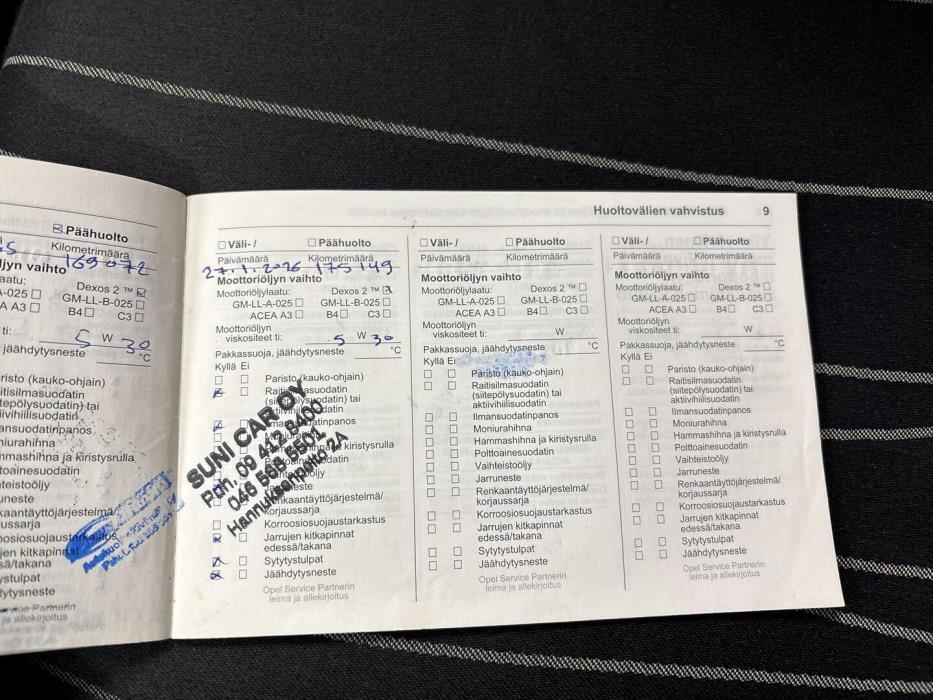 Huoltovälien vahvistus 9
S. Päähuolto
Kilometrimäärä
169 072
ljyn vaihto
aatu: Dexos 2 ™
A-025 GM-LL-B-025
A A3 B4 C3
ti: 5 W 30
jäähdytysneste °C
risto (kauko-ohjain)
itisilmasuodatin
tepölysuodatin) tai
tiivihiilisuodatin
ansuodatinpanos
niurahihna
mmashihna ja kiristysrulla
toainesuodatin
hteistoöljy
uneste
kaantäyttöjärjestelmä/
ussarja
osiosuojaustarkastus
jen kitkapinnat
sä/takana
ystulpat
dytysneste
Service Partnerin
ja allekirjoitus
Väli- / Päähuolto
Päivämäärä Kilometrimäärä
27.1.2026 175 149
Moottoriöljyn vaihto
Moottoriöljylaatu: Dexos 2 ™
GM-LL-A-025 GM-LL-B-025
ACEA A3 B4 C3
Moottoriöljyn
viskositeet ti: 5 W 30
Pakkassuoja, jäähdytysneste °C
Kyllä Ei
Paristo (kauko-ohjain)
Raitisilmasuodatin
(siitepölysuodatin) tai
aktiivihiilisuodatin
Ilmansuodatinpanos
Moniurahihna
kiristysrulla
Renkaantäyttöjärjestelmä/
korjaussarja
Korroosiosuojaustarkastus
Jarrujen kitkapinnat
edessä/takana
Sytytystulpat
Jäähdytysneste
Opel Service Partnerin
leima ja allekirjoitus
SUNI CAR OY
Puh. 09 412 8400
Hannuksenpelto 2A
Väli- / Päähuolto
Päivämäärä Kilometrimäärä
Moottoriöljyn vaihto
Moottoriöljylaatu: Dexos 2 ™
GM-LL-A-025 GM-LL-B-025
ACEA A3 B4 C3
Moottoriöljyn
viskositeet ti: W
Pakkassuoja, jäähdytysneste °C
Kyllä Ei
Paristo (kauko-ohjain)
Raitisilmasuodatin
(siitepölysuodatin) tai
aktiivihiilisuodatin
Ilmansuodatinpanos
Moniurahihna
Hammashihna ja kiristysrulla
Polttoainesuodatin
Vaihteistoöljy
Jarruneste
Renkaantäyttöjärjestelmä/
korjaussarja
Korroosiosuojaustarkastus
Jarrujen kitkapinnat
edessä/takana
Sytytystulpat
Jäähdytysneste
Opel Service Partnerin
leima ja allekirjoitus
Väli- / Päähuolto
Päivämäärä Kilometrimäärä
Moottoriöljyn vaihto
Moottoriöljylaatu: Dexos 2 ™
GM-LL-A-025 GM-LL-B-025
ACEA A3 B4 C3
Moottoriöljyn
viskositeet ti: W
Pakkassuoja, jäähdytysneste °C
Kyllä Ei
Paristo (kauko-ohjain)
Raitisilmasuodatin
(siitepölysuodatin) tai
aktiivihiilisuodatin
Ilmansuodatinpanos
Moniurahihna
Hammashihna ja kiristysrulla
Polttoainesuodatin
Vaihteistoöljy
Jarruneste
Renkaantäyttöjärjestelmä/
korjaussarja
Korroosiosuojaustarkastus
Jarrujen kitkapinnat
edessä/takana
Sytytystulpat
Jäähdytysneste
Opel Service Partnerin
leima ja allekirjoitus